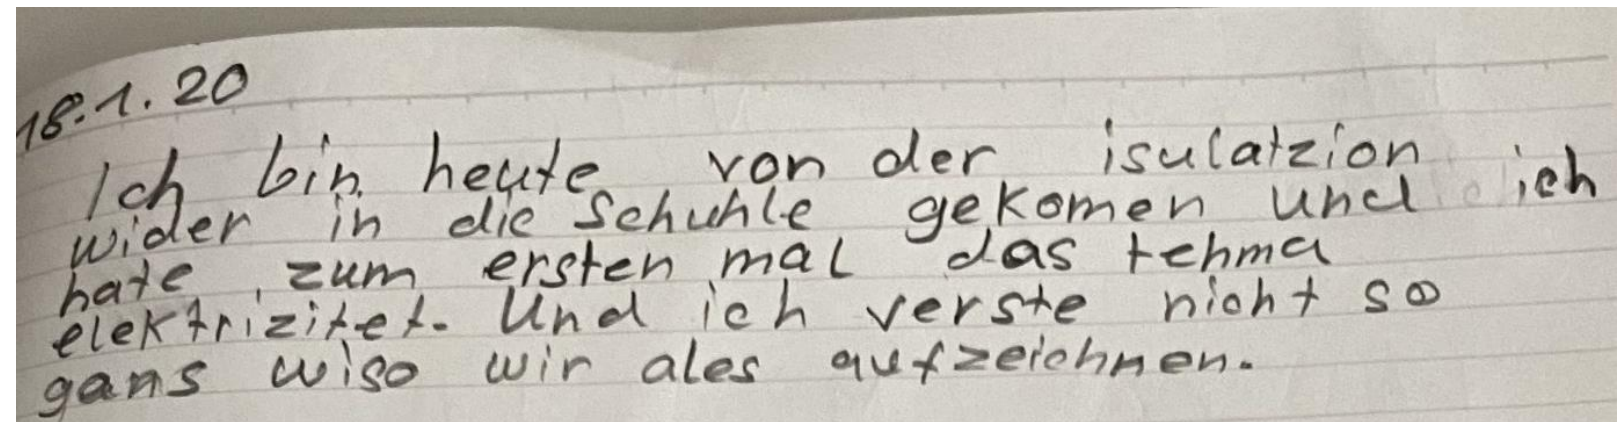 18.1.20
Ich bin heute von der isulatzion
wider in die Schuhle gekomen und ich
hate zum ersten mal das tehma
elektrizitet. Und ich verste nicht so
gans wiso wir ales aufzeichnen.